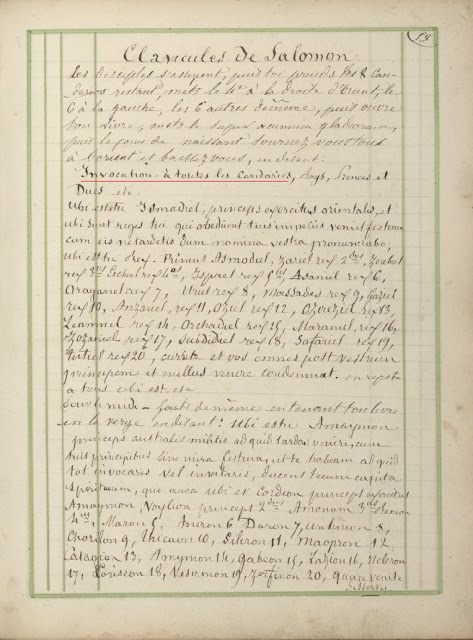 13
Clavicules de Salomon
les disciples s'asseyent, puis toi prends les 8 Can-
daros restant, mets le 4e à la droite d'Erunt, le
6 à la gauche, les 6 autres de même, puis ouvre
ton livre, mets le super summum gladiorum,
puis le jour de naissant tournez vous tous
à l'orient et baissez vous, en disant:
Invocation à toutes les Candaries, Roys, Princes et
Ducs etc
Ubi estetu Ismodiel, princeps exercitus orientales, et
ubi sunt reges tui qui obediunt tuis imperiis venite
cum eis ne tardetis dum nomina vestra pronunciabo,
ubi estne Rex. Primus Asmodel, Zariel rex 2dus, Zoebel
rex 3us rex 4us, Isspriel rex 5us, Asaniel rex 6,
Oraganel rex 7, Uriel rex 8, Massabes rex 9, Gaziel
rex 10, Anzanel, rex 11, Oziel rex 12, rex 13,
rex 14, Orchadiel rex 15, Maraniel, rex 16,
Zozamiel rex 17, Subdidiel rex 18, Safariel rex 19,
rex 20, currite et vos omnes post vestrum
principem et nullus venire condemnat. on repete
a tous ubi est, etc
pour le midi – fouts de même en tenant ton livre
en la verge en disant: Ubi estu Amaymon
princeps australis militis ad quid tardas venire, cum
tuis principibus sine mira ut te habeam ad quid
tot invocaris vel invitaris, ducens tecum capita
spirituum, ubi et Cordeon princeps exercitus
Amaymon, princeps 2dus, Amonum 3us
4us, Maron 5, Aniron 6t Daron 7, 8,
Chordon 9, Thicaim 10, Siliron 11, Maopron 12
Catagion 13, Amymon 14, Gabeon 15, Lazion 16, Noloron
17, Loriseon 18, Vesurmon 19, Zorfinon 20, quare venite